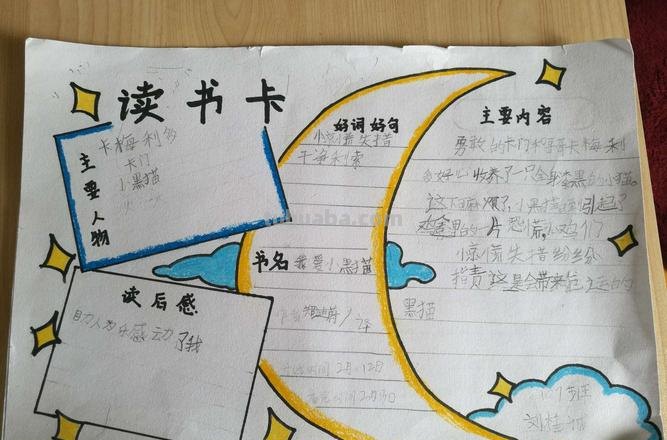 读书卡
主要人物
卡梅利多
卡门
小黑猫
好词好句
惊慌失措
干净利索
主要内容
勇敢的卡门和哥哥卡梅利
多好心收养了一只全身漆黑的小猫。
这下麻烦了,小黑猫引起了
鸡舍里的一片恐慌小鸡们
惊慌失措纷纷
指责这是会带来厄运的
黑猫
书名 我爱小黑猫
读后感
助人为乐感动了我
2月12日
刘桂